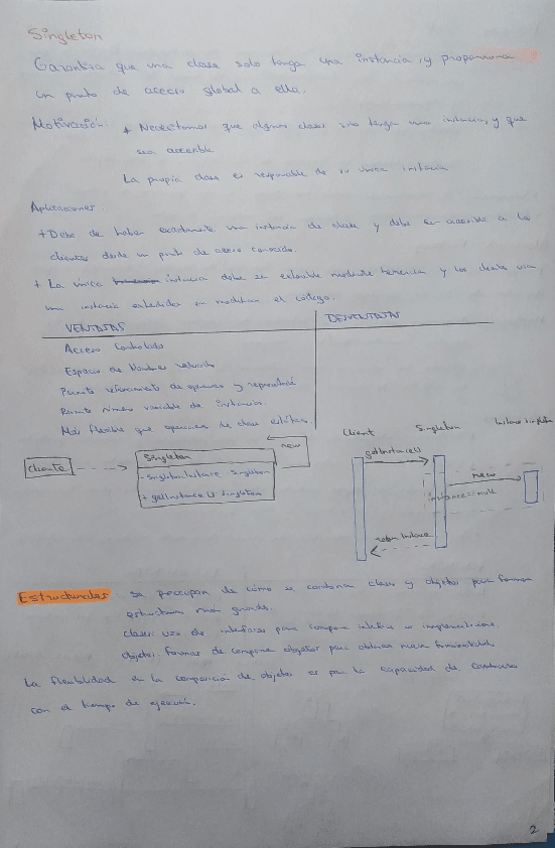 Singleton
Garantiza que una clase solo tenga una instancia, y proporciona
un punto de acceso global a ella.
Motivación: + Necesitamos que algunas clases solo tenga una instancia, y que
sea accesible
La propia clase es responsable de su única instancia
Aplicaciones:
+ Debe de haber exactamente una instancia de clase y debe ser accesible a los
clientes desde un punto de acceso conocido.
+ La única instancia debe ser extensible mediante herencia y los clientes usen
una instancia extendida sin modificar el código.
VENTAJAS
DESVENTAJAS
Acceso Controlado
Espacio de Nombres reducido
Permite refinamiento de operaciones y representación
Permite número variable de instancias.
Más flexible que operaciones de clase estáticas.
Cliente
Singleton
- SingletonInstance Singleton
+ getInstance() Singleton
new
Client
Singleton
getInstance()
new()
instance==null
return Instance
Estructurales: Se preocupan de cómo se combinan clases y objetos para formar
estructuras más grandes.
Clases: uso de interfaces para componer interfaces o implementaciones.
Objetos: Formas de componer objetos para obtener nueva funcionalidad
La flexibilidad en la composición de objetos es por la capacidad de
con el tiempo de ejecución.
2